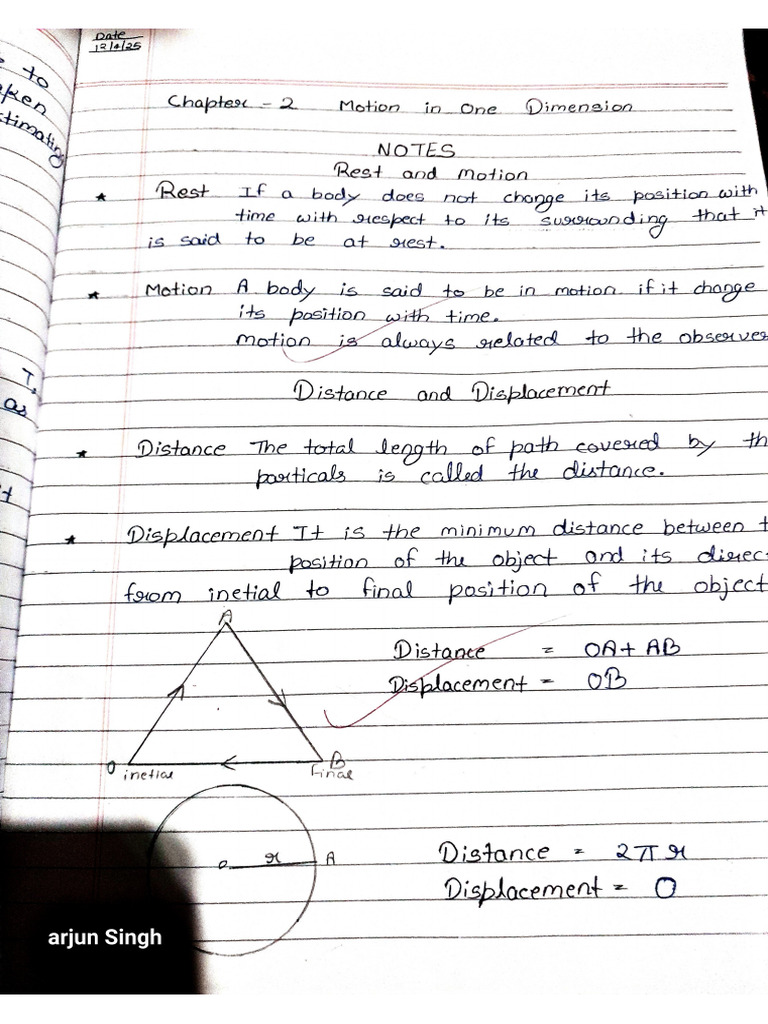 Date
12/4/25
to
aken
timating
T,
as
Chapter - 2 Motion in One Dimension
NOTES
Rest and Motion
* Rest If a body does not change its position with
time with respect to its surrounding that it
is said to be at rest.
* Motion A body is said to be in motion if it change
its position with time.
motion is always related to the observer
Distance and Displacement
* Distance The total length of path covered by th
particals is called the distance.
* Displacement It is the minimum distance between t
position of the object and its direc
from inetial to final position of the object
A
Distance = OA + AB
Displacement = OB
O inetial
B
final
o r A
Distance = 2πr
Displacement = 0
arjun Singh